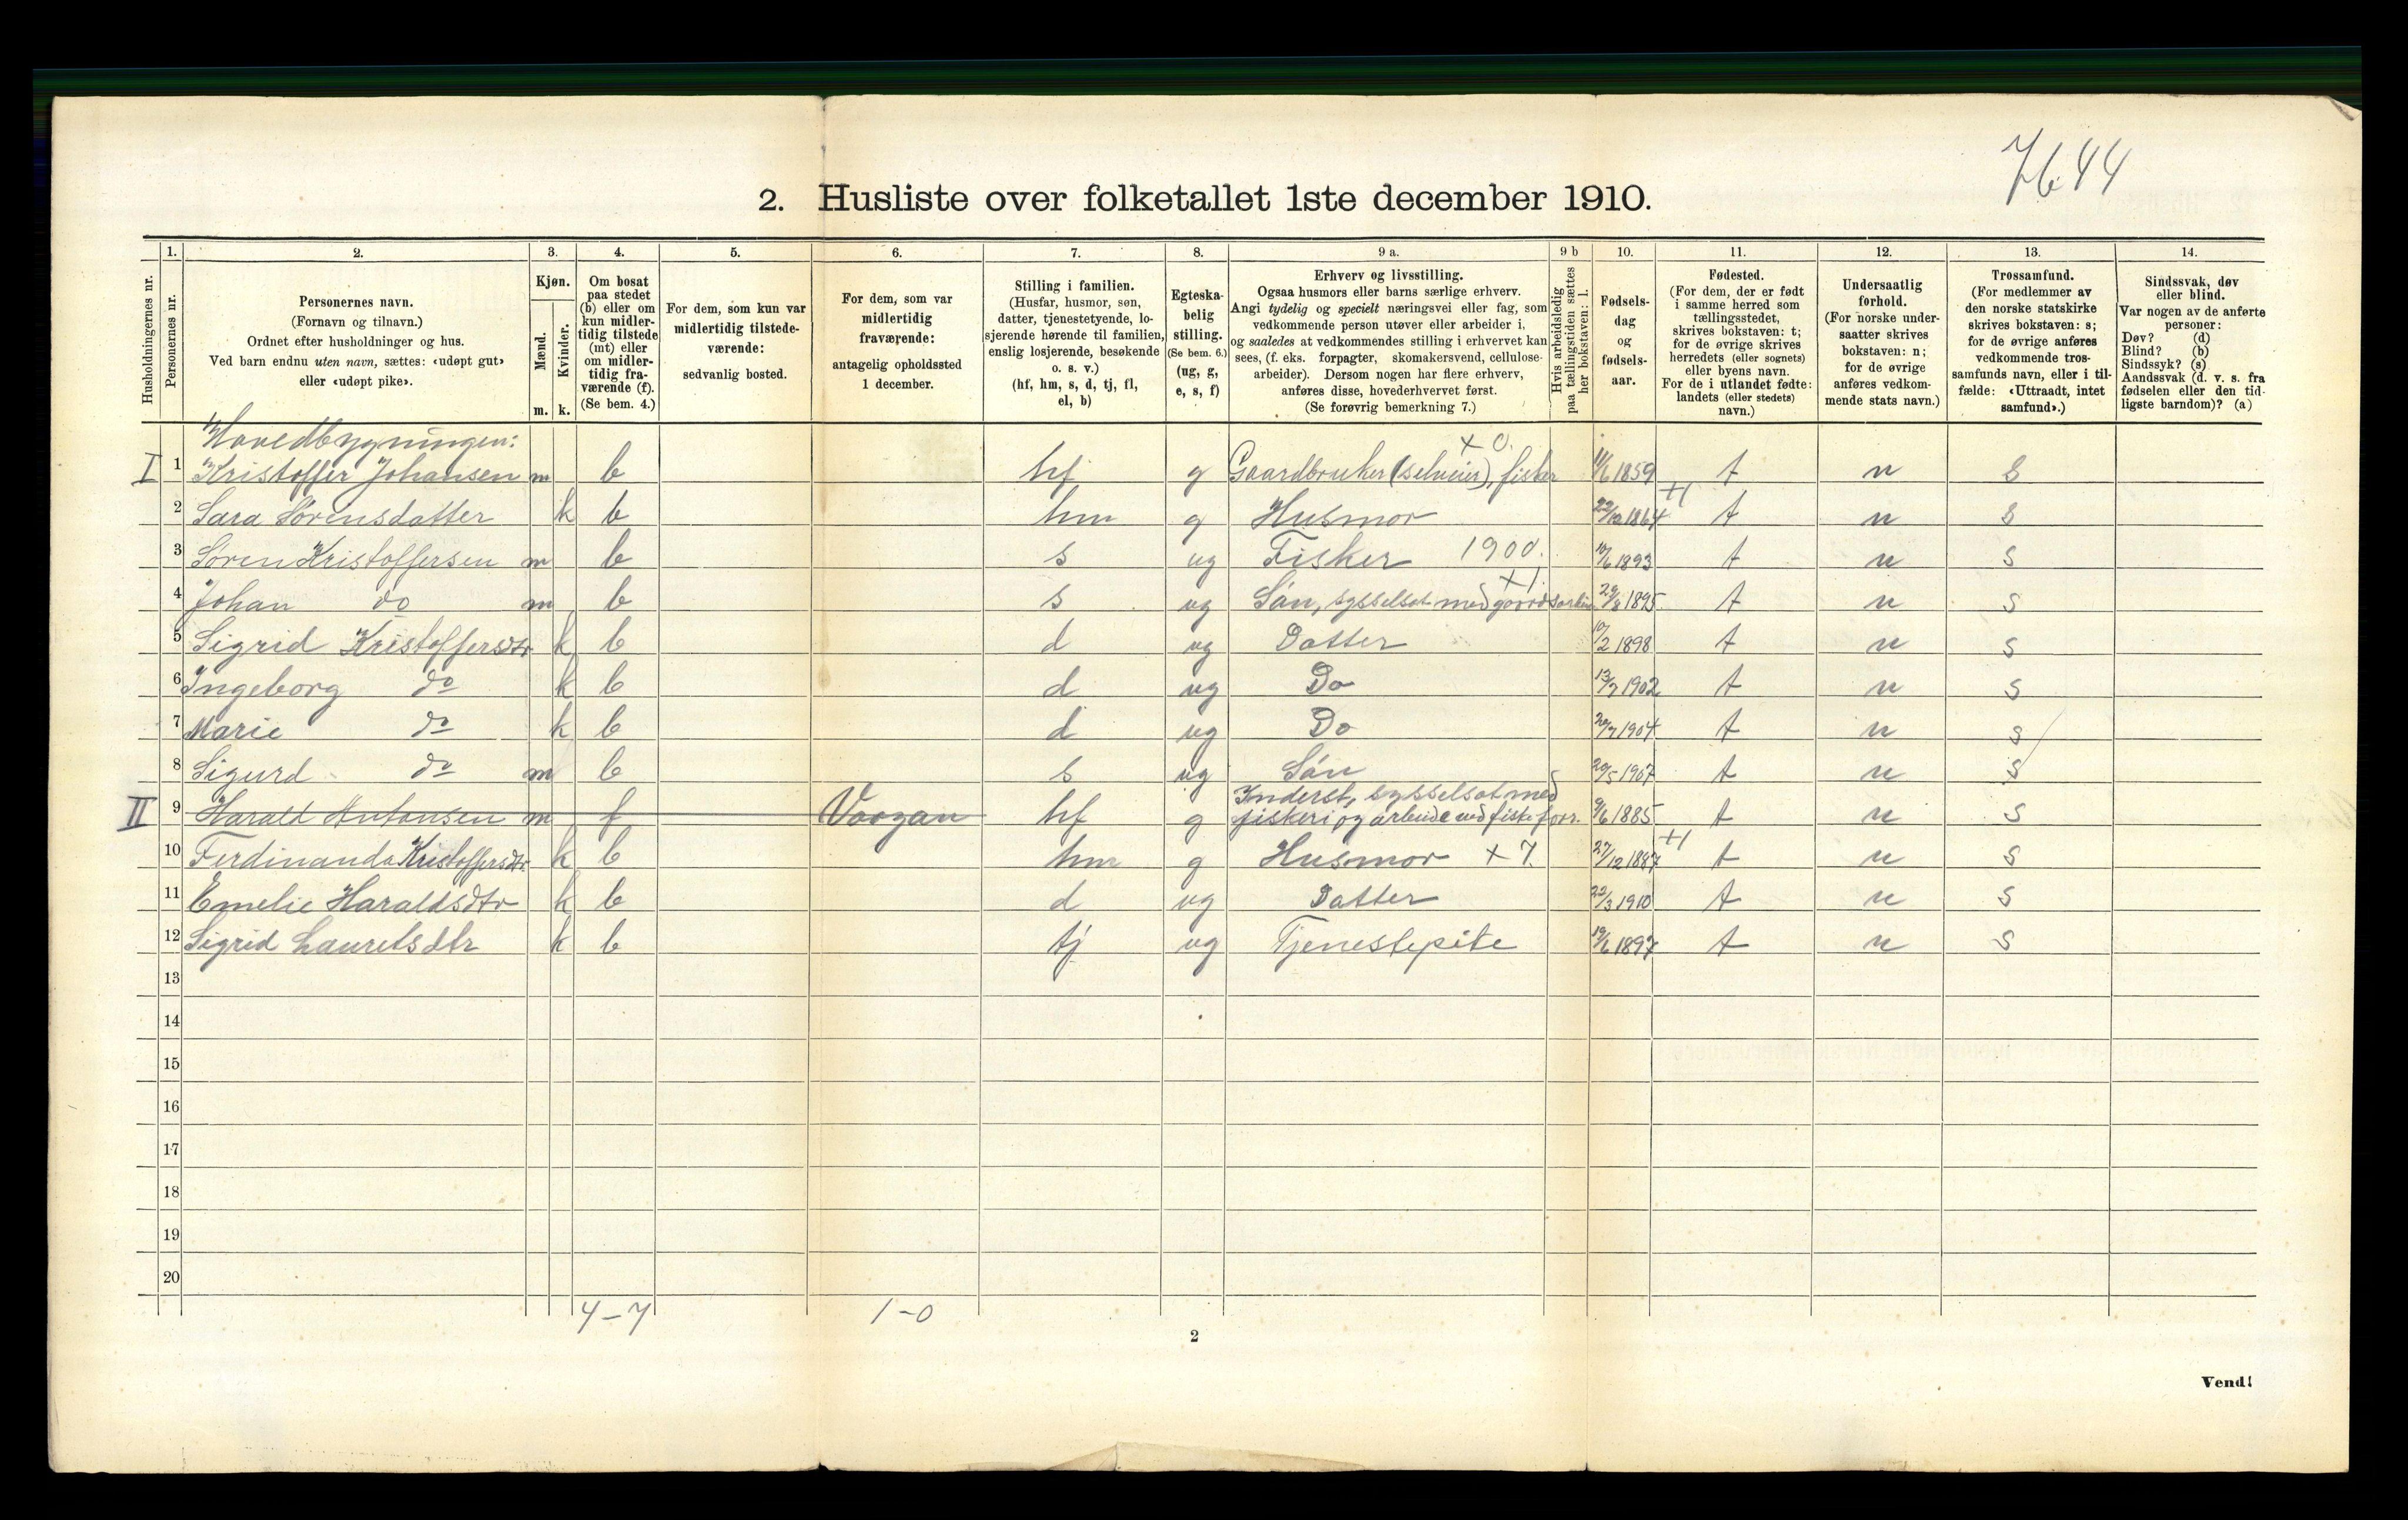 7644
2. Husliste over folketallet 1ste december 1910.
1. 2. 3. 4. 5. 6. 7. 8. 9 a. 9 b 10. 11. 12. 13. 14.
Husholdningernes nr.
Personernes nr.
Personernes navn.
(Fornavn og tilnavn.)
Ordnet efter husholdninger og hus.
Ved barn endnu uten navn, sættes: «udøpt gut»
eller «udøpt pike».
Kjøn.
Mænd.
Kvinder.
m. k.
Om bosat
paa stedet
(b) eller om
kun midler-
tidig tilstede
(mt) eller
om midler-
tidig fra-
værende (f).
(Se bem. 4.)
For dem, som kun var
midlertidig tilstede-
værende:
sedvanlig bosted.
For dem, som var
midlertidig
fraværende:
antagelig opholdssted
1 december.
Stilling i familien.
(Husfar, husmor, søn,
datter, tjenestetyende, lo-
sjerende hørende til familien,
enslig losjerende, besøkende
o. s. v.)
(hf, hm, s, d, tj, fl,
el, b)
Egteska-
belig
stilling.
(Se bem. 6.)
(ug, g,
e, s, f)
Erhverv og livsstilling.
Ogsaa husmors eller barns særlige erhverv.
Angi tydelig og specielt næringsvei eller fag, som
vedkommende person utøver eller arbeider i,
og saaledes at vedkommendes stilling i erhvervet kan
sees, (f. eks. forpagter, skomakersvend, cellulose-
arbeider). Dersom nogen har flere erhverv,
anføres disse, hovederhvervet først.
(Se forøvrig bemerkning 7.)
Hvis arbeidsledig
paa tællingstiden sættes
her bokstaven: l.
Fødsels-
dag
og
fødsels-
aar.
Fødested.
(For dem, der er født
i samme herred som
tællingsstedet,
skrives bokstaven: t;
for de øvrige skrives
herredets (eller sognets)
eller byens navn.
For de i utlandet fødte:
landets (eller stedets)
navn.)
Undersaatlig
forhold.
(For norske under-
saatter skrives
bokstaven: n;
for de øvrige
anføres vedkom-
mende stats navn.)
Trossamfund.
(For medlemmer av
den norske statskirke
skrives bokstaven: s;
for de øvrige anføres
vedkommende tros-
samfunds navn, eller i til-
fælde: «Uttraadt, intet
samfund».)
Sindssvak, døv
eller blind.
Var nogen av de anførte
personer:
Døv? (d)
Blind? (b)
Sindssyk? (s)
Aandssvak (d. v. s. fra
fødselen eller den tid-
ligste barndom)? (a)
Hovedbygningen:
x 0.
I 1 Kristoffer Johansen m b hf g Gaardbruker (selveier), fisker 11/6 1859 t n s
2 Sara Sørensdatter k b hm g Husmor 22/12 1864 +1 t n s
3 Søren Kristoffersen m b s ug Fisker 1900. 10/6 1893 t n s
x 1.
4 Johan do m b s ug Søn, sysselsat med gaardsarbeide 29/8 1895 t n s
5 Sigrid Kristoffersdtr k b d ug Datter 10/2 1898 t n s
6 Ingeborg do k b d ug Do 13/7 1902 t n s
7 Marie do k b d ug Do 20/7 1904 t n s
8 Sigurd do m b s ug Søn 20/5 1907 t n s
Inderst, sysselsat med
II 9 Harald Antonsen m f Vaagan hf g fiskeri og arbeide ved fiskeforr. 9/6 1885 t n s
10 Ferdinanda Kristoffersdtr. k b hm g Husmor x 7. 27/12 1887 +1 t n s
11 Emelie Haraldsdtr k b d ug Datter 22/3 1910 t n s
12 Sigrid Lauritsdtr k b tj ug Tjenestepike 19/6 1897 t n s
13
14
15
16
17
18
19
20
4-7 1-0
2
Vend!